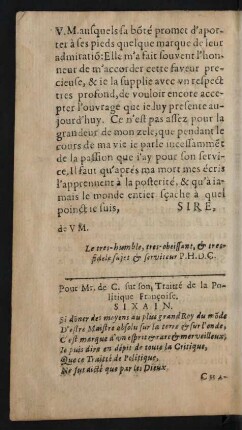 V. M. ausquels sa bõté promet d'apor-
ter à ses pieds quelque marque de leur
admiratiõ: Elle m'a fait souvent l'hon-
neur de m'accorder cette faveur pre-
cieuse, & ie la supplie avec un respect
tres profond, de vouloir encore acce-
pter l'ouvrage que ie luy presente au-
jourd'huy. Ce n'est pas assez pour la
grandeur de mon zele, que pendant le
cours de ma vie ie parle incessãmẽt
de la passion que i'ay pour son servi-
ce, Il faut qu'aprés ma mort mes écris
l'apprennent à la posterité, & qu'à ia-
mais le monde entier sçache à quel
poinct ie suis, SIRE,
de V M.
Le tres-humble, tres-obeissant, & tres-
fidele sujet & serviteur P. H. D. C.
Pour Mr. de C. sur son, Traitté de la Po-
litique Françoise.
SIXAIN.
Si dõner des moyens au plus grand Roy du mõde
D'estre Maistre absolu sur la terre & sur l'onde,
C'est marque d'un esprit & rare & merveilleux,
Je puis dire en dépit de toute la Critique,
Que ce Traitté de Politique,
Ne fut dicté que par les Dieux.